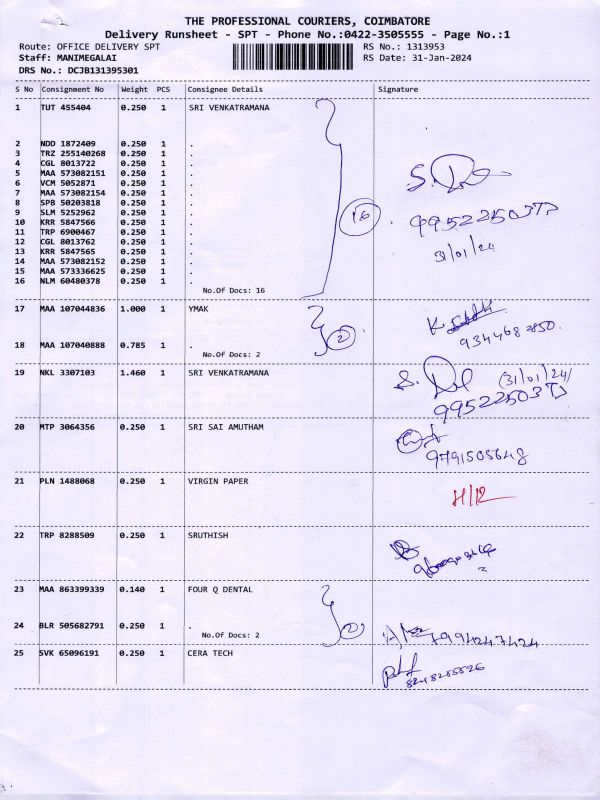 THE PROFESSIONAL COURIERS, COIMBATORE
Delivery Runsheet - SPT - Phone No.:0422-3505555 - Page No.:1
Route: OFFICE DELIVERY SPT RS No.: 1313953
Staff: MANIMEGALAI RS Date: 31-Jan-2024
DRS No.: DCJB131395301
S No Consignment No Weight PCS Consignee Details Signature
1 TUT 455404 0.250 1 SRI VENKATRAMANA
2 NDD 1872409 0.250 1 .
3 TRZ 255140268 0.250 1 .
4 CGL 8013722 0.250 1 .
5 MAA 573082151 0.250 1 .
6 VCM 5052871 0.250 1 .
7 MAA 573082154 0.250 1 .
8 SPB 50203818 0.250 1 .
9 SLM 5252962 0.250 1 .
10 KRR 5847566 0.250 1 .
11 TRP 6900467 0.250 1 .
12 CGL 8013762 0.250 1 .
13 KRR 5847565 0.250 1 .
14 MAA 573082152 0.250 1 .
15 MAA 573336625 0.250 1 .
16 NLM 60480378 0.250 1 .
No.Of Docs: 16
16
31/01/24
17 MAA 107044836 1.000 1 YMAK
18 MAA 107040888 0.785 1 .
No.Of Docs: 2
2
19 NKL 3307103 1.460 1 SRI VENKATRAMANA
(31/01/24)
20 MTP 3064356 0.250 1 SRI SAI AMUTHAM
9791505648
21 PLN 1488068 0.250 1 VIRGIN PAPER
22 TRP 8288509 0.250 1 SRUTHISH
23 MAA 863399339 0.140 1 FOUR Q DENTAL
24 BLR 505682791 0.250 1 .
No.Of Docs: 2
2
7994247424
25 SVK 65096191 0.250 1 CERA TECH